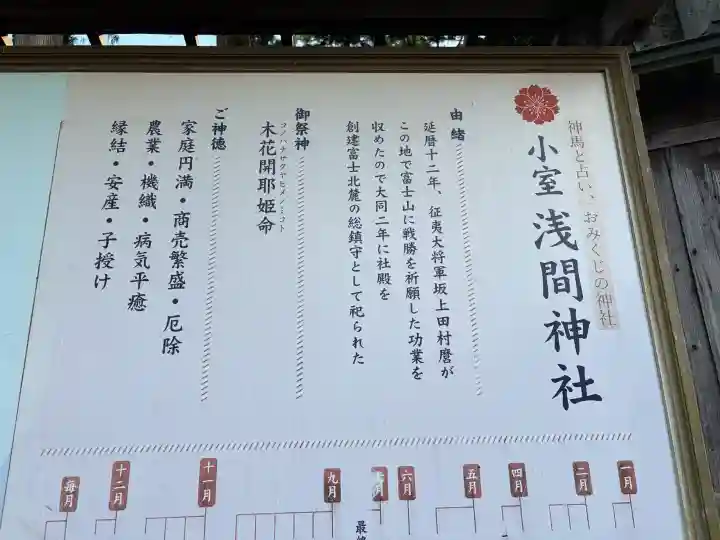 神馬と占い、おみくじの神社
小室浅間神社
由緒
延暦十二年、征夷大将軍坂上田村麿が
この地で富士山に戦勝を祈願した功業を
収めたので大同二年に社殿を
創建富士北麓の総鎮守として祀られた
御祭神
コノハナサクヤヒメノミコト
木花開耶姫命
ご神徳
家庭円満・商売繁盛・厄除
農業・機織・病気平癒
縁結・安産・子授け
一月
二月
四月
五月
六月
九月
十一月
十二月
毎月